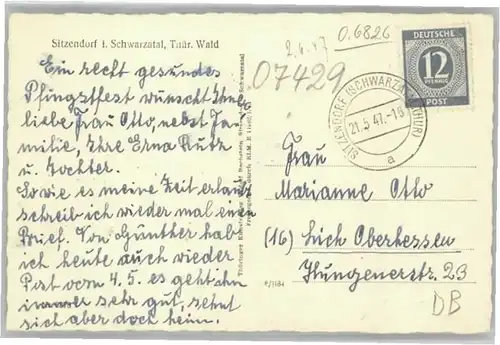 Sitzendorf i. Schwarzatal, Thür. Wald
Ein recht gesundes
Pfingstfest wünscht Ihnen
liebe Frau Otto, nebst Fa-
milie, Ihre Erna Rutz
u. Tochter.
Sowie es meine Zeit erlaubt
schreib ich wieder mal einen
Brief. Von Günther hab
ich heute auch wieder
Post vom 4.5. es geht ihm
immer sehr gut, sehnt
sich aber doch heim.
2.6.47
0.6826
07429
DEUTSCHE
12
PFENNIG
POST
SITZENDORF (SCHWARZATAL THÜR)
21.5.47.-18
a
Frau
Marianne Otto
(16) Lich Oberhessen
Hungenerstr. 23
DB